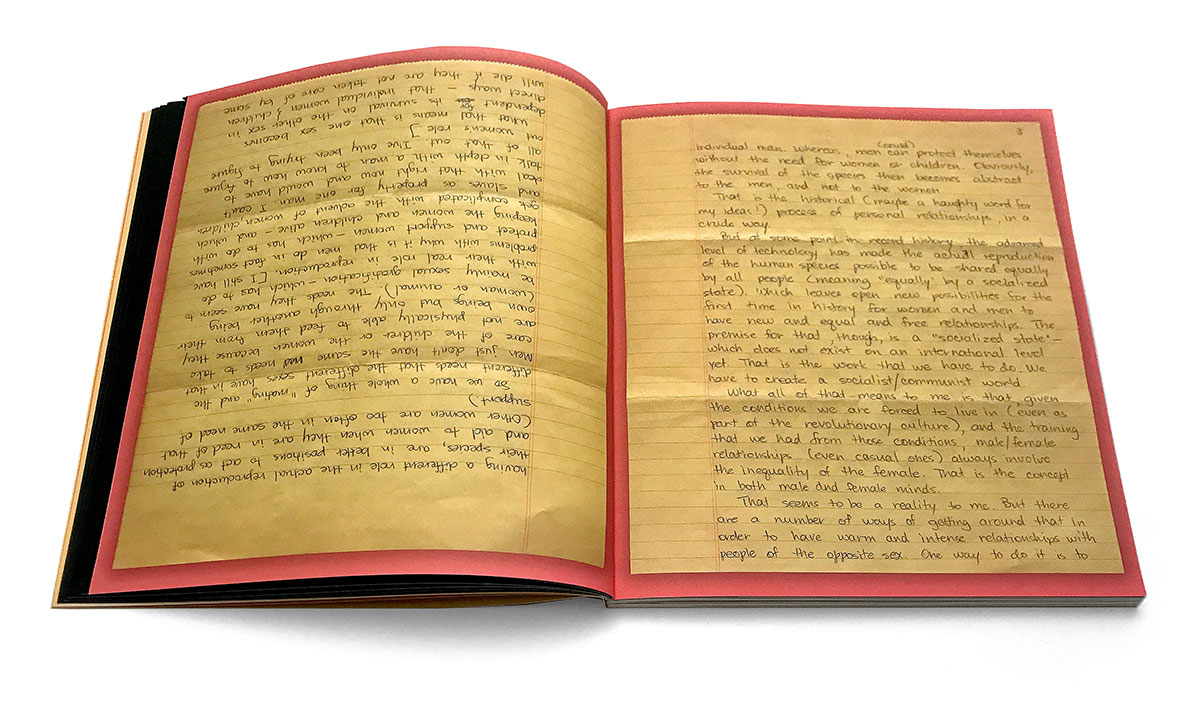 having a different role in the actual reproduction of
their species, are in better positions to act as protection
and aid to women when they are in need of that
(Other women are too often in the same need of
support)
So we have a whole thing of "mating" and the
different needs that the different sexes have in that
Men just don't have the same needs to take
care of the children or the women because they
are not physically able to feed them from their
own beings but only through another being
(woman or animal). The needs they have seem to
be mainly sexual gratification - which has to do
with their real role in reproduction. [I still have
problems with why it is that men do in fact sometimes
protect and support women - which - has to do with
keeping the women and children alive - and which
gets complicated with the advent of women, children
and slaves as property for one man I can't
deal with that right now and would have to
talk in depth with a man to know how to figure
all of that out I've only been trying to figure
out women's role ]
what that means is that one sex becomes
dependent for its survival on the other sex in
direct ways - that individual women & children
will die if they are not taken care of by some
3
individual man. whereas, men can protect themselves
without the need for women or children. Obviously,
the survival of the species then becomes abstract
to the men, and not to the women
That is the historical (maybe a haughty word for
my ideas!) process of personal relationships, in a
crude way.
But at some point in recent history the advanced
level of technology has made the actual reproduction
of the human species possible to be shared equally
by all people (meaning "equally by a socialized
state). Which leaves open new possibilities for the
first time in history for women and men to
have new and equal and free relationships. The
premise for that, though, is a "socialized state" -
which does not exist on an international level
yet. That is the work that we have to do. We
have to create a socialist/communist world
What all of that means to me is that, given
the conditions we are forced to live in (even as
part of the revolutionary culture), and the training
that we had from those conditions, male/female
relationships (even casual ones) always involve
the inequality of the female. That is the concept
in both male and female minds.
That seems to be a reality to me. But there
are a number of ways of getting around that in
order to have warm and intense relationships with
people of the opposite sex. One way to do it is to